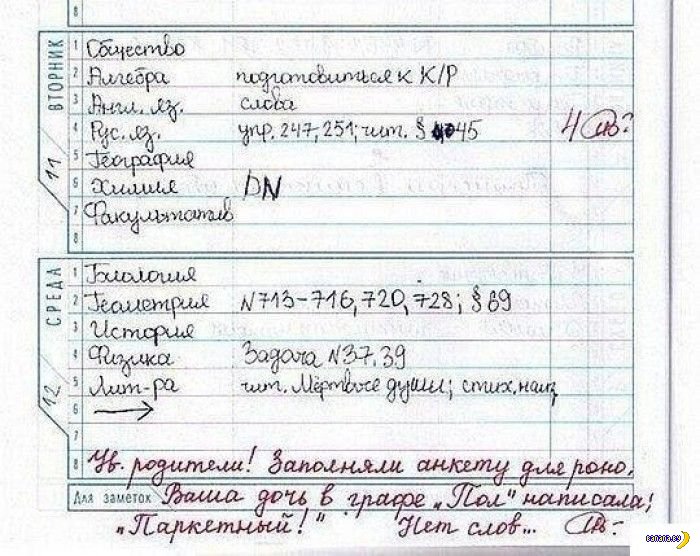 8
ВТОРНИК
11
1 Общество
2 Алгебра подготовиться к К/Р
3 Англ. яз. слова
4 Рус. яз. упр. 247, 251; чит. § 45 4
5 География
6 Химия DN
7 Факультатив
8
СРЕДА
12
1 Биология
2 Геометрия N 713-716, 720, 728; § 69
3 История
4 Физика Задача N 37, 39
5 Лит-ра чит. Мёртвые души; стих. наиз.
6
7
8 Ув. родители! Заполняли анкету для роно.
Для заметок Ваша дочь в графе „Пол" написала:
„Паркетный!" Нет слов...
банан.es